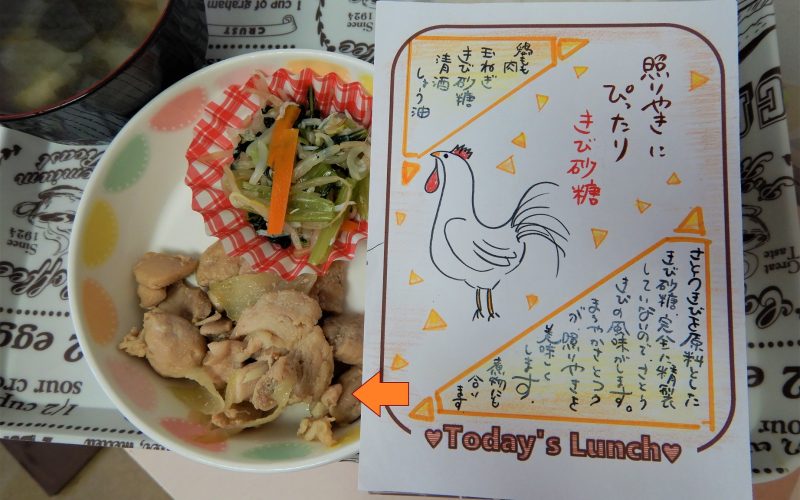 照りやきに
ぴったり
きび砂糖
鶏もも肉
玉ねぎ
きび砂糖
清酒
しょう油
さとうきびを原料とした
きび砂糖。完全に精製
していないので、さとう
きびの風味がします。
まろやかさとコク
が照りやきを
美味しく
します。
煮物にも
合い
ます
Today's Lunch
1 cup of graham
CRUST
Since
1924
Since
1924
Coffee
2 egg
sour cre
1/2 cup
Great
Taste